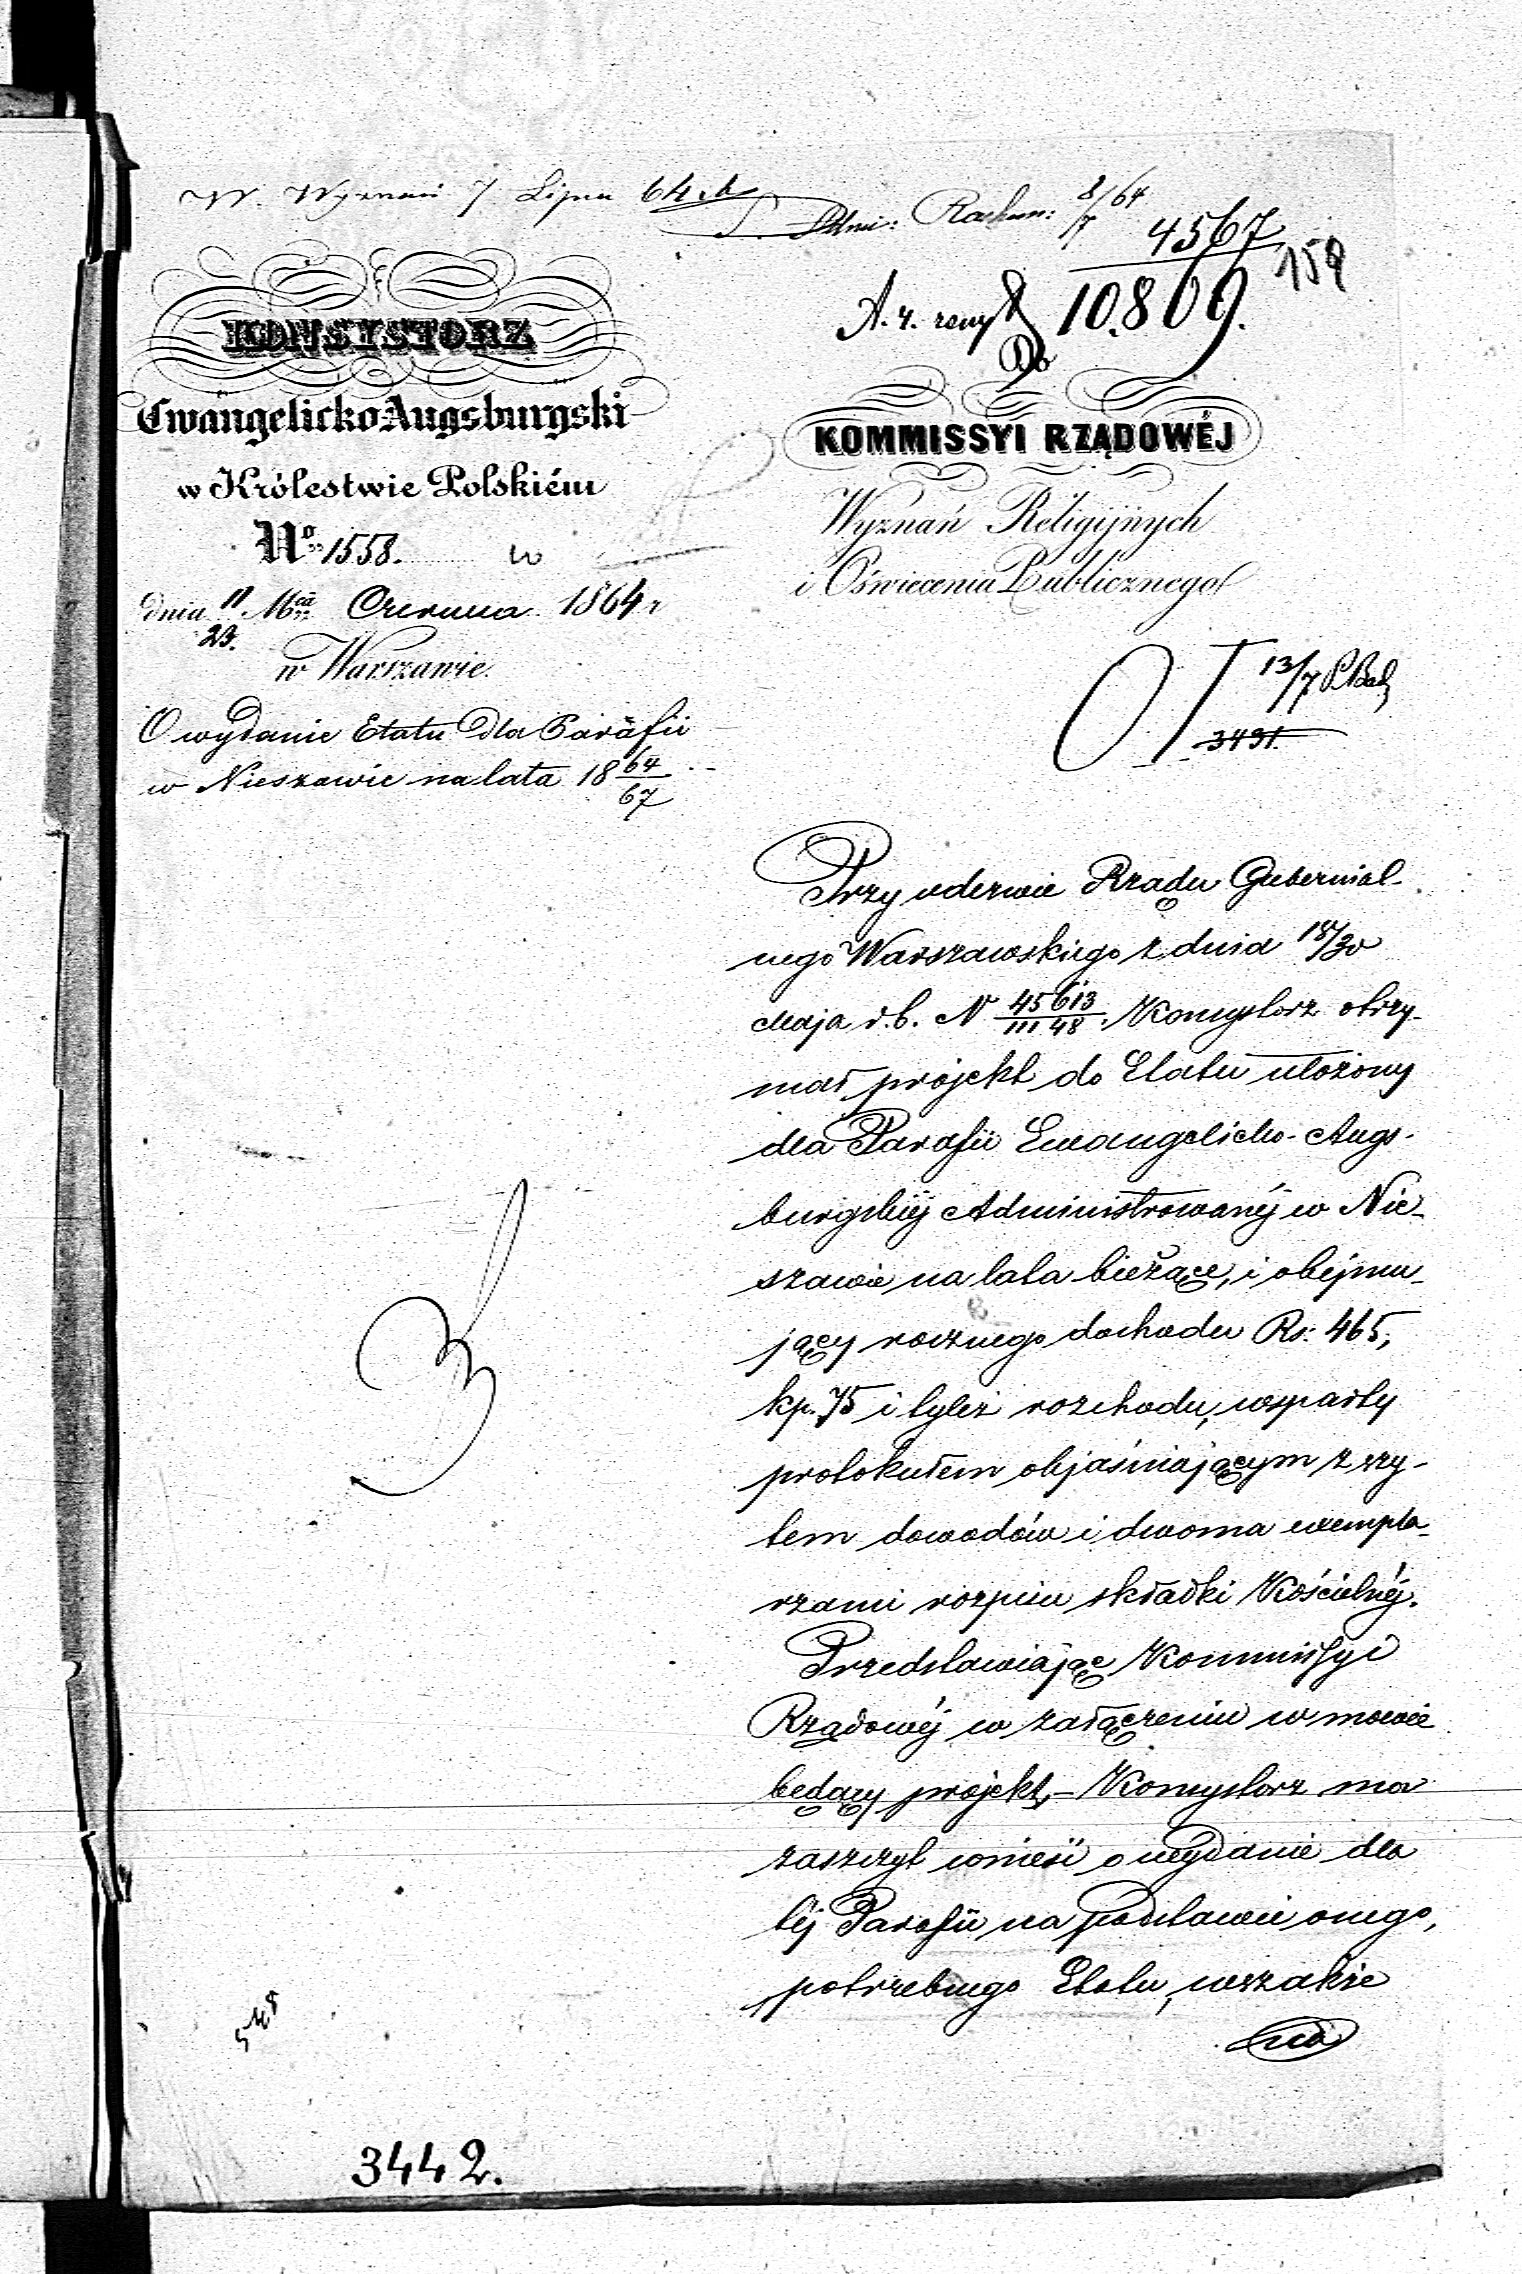 W. Wyznań 7 Lipca 64
Rachun: 8/7 64
4567
10.869.
159
KONSYSTORZ
Ewangelicko-Augsburgski
w Królestwie Polskiém
No 1558.
dnia 11/23. Mca Czerwca 1864 r
w Warszawie.
O wydanie Etatu dla Parafii
w Nieszawie na lata 18 64/67
Do
KOMMISSYI RZĄDOWÉJ
Wyznań Religijnych
i Oświecenia Publicznego
13/7
3491.
Przy odezwie Rządu Gubernial-
nego Warszawskiego z dnia 18/30
Maja r.b. N 45613/III 48. Konsystorz otrzy-
mał projekt do Etatu ułożony
dla Parafii Ewangelicko-Augs-
burgskiéj Administrowanéj w Nie-
szawie na lata bieżące, i obejmu-
jący rocznego dochodu Rs: 465,
kp. 75 i tyleż rozchodu, wsparty
protokułem objaśniającym z szy-
tem dowodów i dwoma exempla-
rzami rozpisu składki Kościelnéj.
Przedstawiając Kommissyi
Rządowéj w załączeniu w mowie
będący projekt, – Konsystorz ma
zaszczyt wnieść o wydanie dla
téj Parafii na podstawie onego,
potrzebnego Etatu, wszakże
3442.